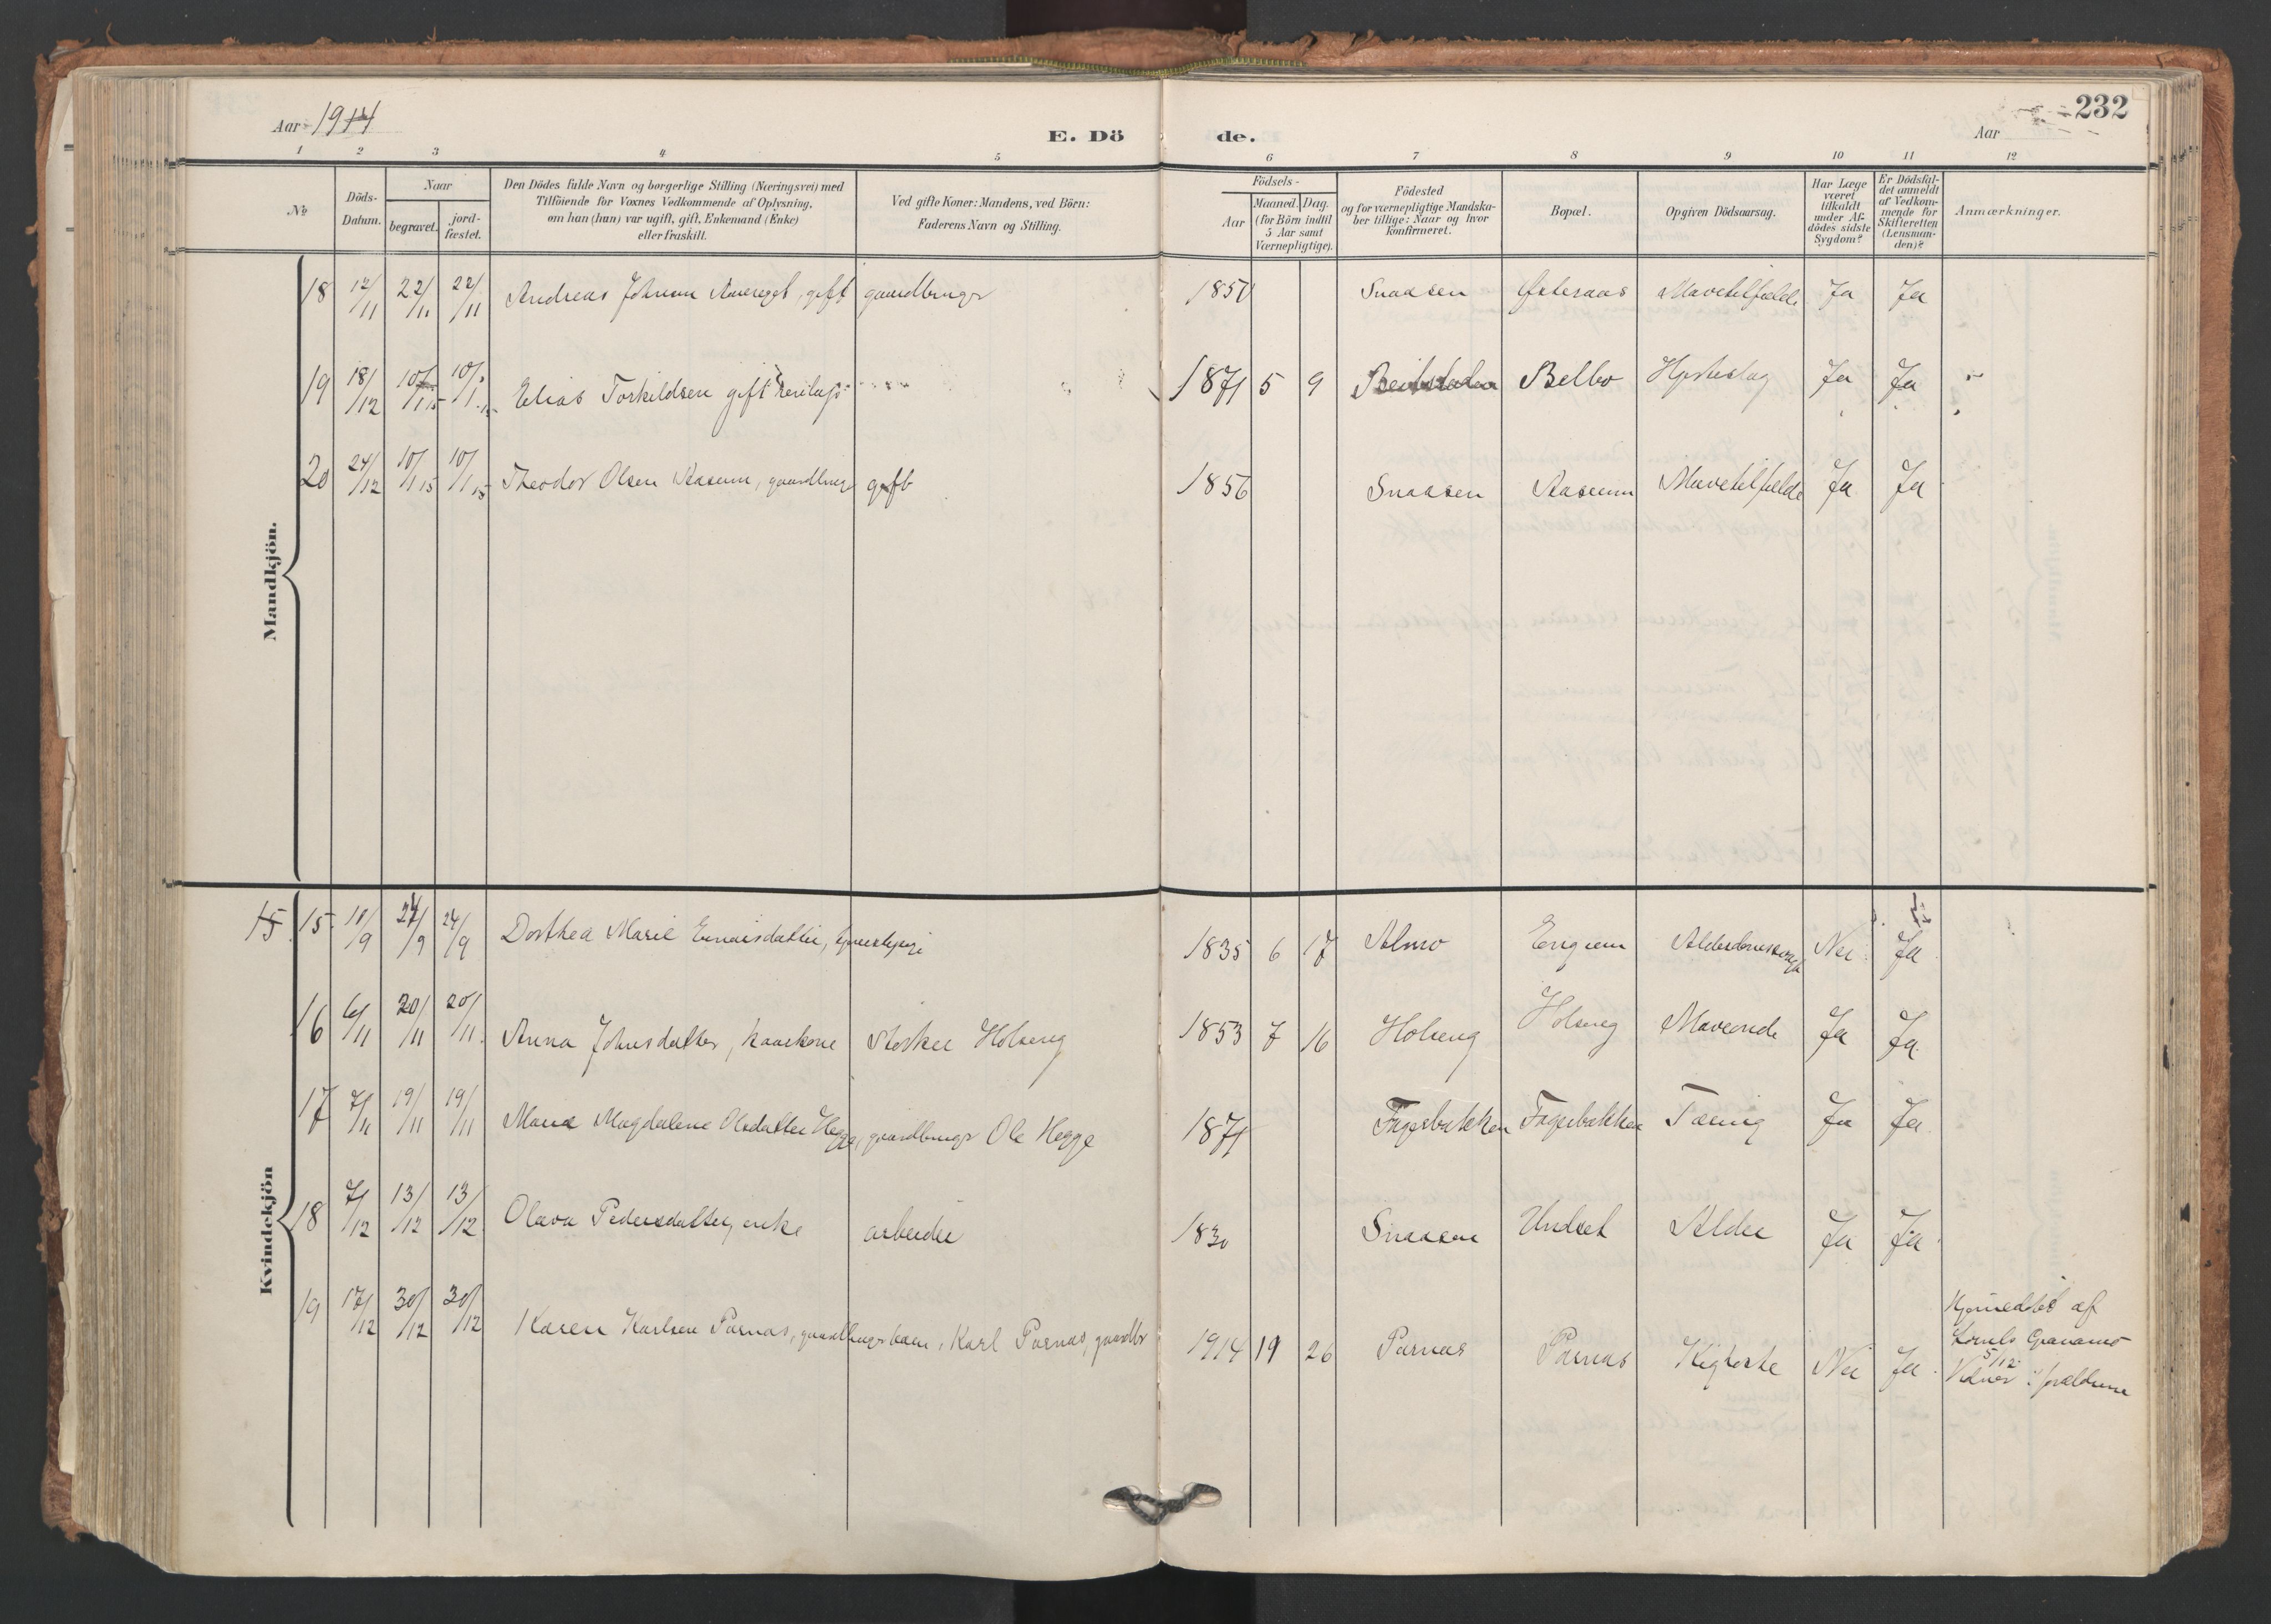 232
Aar 1914
E. Dö de.
Aar
1 2 3 4 5 6 7 8 9 10 11 12
No
Döds-
Datum.
Naar
begravet.
jord-
fæstet.
Den Dödes fulde Navn og borgerlige Stilling (Næringsvei) med
Tilföiende for Voxnes Vedkommende af Oplysning,
om han (hun) var ugift, gift, Enkemand (Enke)
eller fraskilt.
Ved gifte Koner: Mandens, ved Börn:
Faderens Navn og Stilling.
Födsels-
Aar
Maaned. Dag.
(for Börn indtil
5 Aar samt
Værnepligtige).
Födested
og for værnepligtige Mandska-
ber tillige: Naar og hvor
konfirmeret.
Bopæl.
Opgiven Dödsaarsag.
Har Læge
været
tilkaldt
under Af-
dödes sidste
Sygdom?
Er Dödsfal-
det anmeldt
af Vedkom-
mende for
Skifteretten
(Lensman-
den)?
Anmærkninger.
Mandkjön.
18 12/11 22/11 22/11 Andreas Johnsen gift gaardbruger 1857 Snaasen Østeraas Mavetilfælde Ja Ja
19 18/12 10/1 15 10/1 15 Elias Torkildsen gift 1871 5 9 Beitstaden Belbo Hjerteslag Ja Ja
20 24/12 10/1 15 10/1 15 Theodor Olsen Aasum, gaardbruger gift 1856 Snaasen Aasum Mavetilfælde Ja Ja
Kvindekjön
15 15 18/9 24/9 24/9 Dorthea Marie 1835 6 17 Almo Engum Nei Ja
16 6/11 20/11 20/11 Anna Johnsdatter, kaarkone Storker Holseng 1853 7 16 Holseng Holseng Maveonde Ja Ja
17 7/11 19/11 19/11 Maria Magdalene Olsdatter Hegge, gaardbruger Ole Hegge 1871 Fagerbakken Fagerbakken Tæring Ja Ja
18 7/12 13/12 13/12 Olava Pedersdatter, enke arbeider 1830 Snaasen Undset Alder Ja Ja
19 17/12 30/12 30/12 Karen Karlsen Parnas, gaardbrugerbarn, Karl Parnas, gaardbr 1914 19 26 Parnas Parnas Kighoste Nei Ja
Hjemedøbt af
5/12
Vidner: forældrene